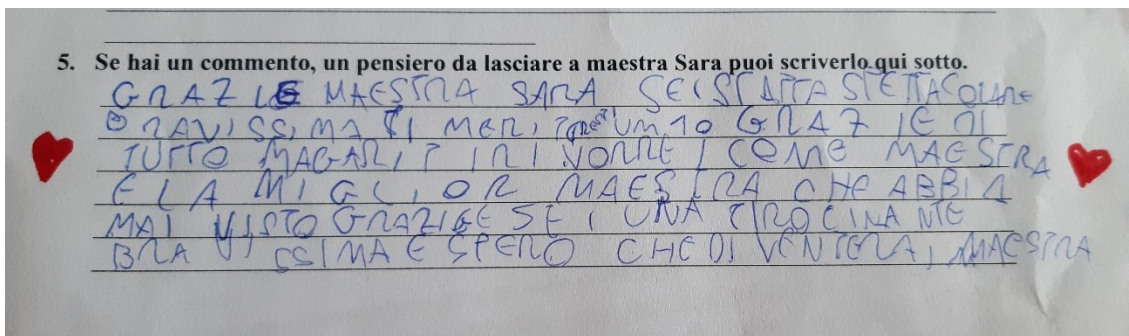 5. Se hai un commento, un pensiero da lasciare a maestra Sara puoi scriverlo qui sotto.
GRAZIE MAESTRA SARA SEI STATTA SPETTACOLARE
BRAVISSIMA TI MERITERESTI UM 10 GRAZIE DI
TUTTO MAGARI TI RIVORREI COME MAESTRA
E LA MIGLIOR MAESTRA CHE ABBIA
MAI VISTO GRAZIE E SEI UNA TIROCINANTE
BRAVISSIMA E SPERO CHE DIVENTERAI MAESTRA